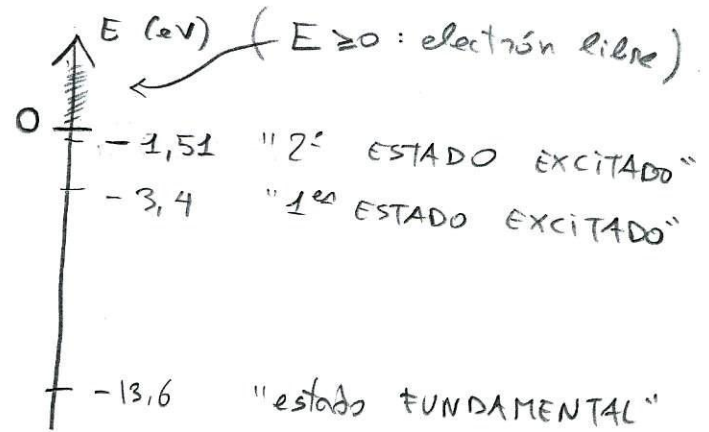 E (eV) (E ≥ 0 : electrón libre)
0
-1,51 "2º ESTADO EXCITADO"
-3,4 "1er ESTADO EXCITADO"
-13,6 "estado FUNDAMENTAL"